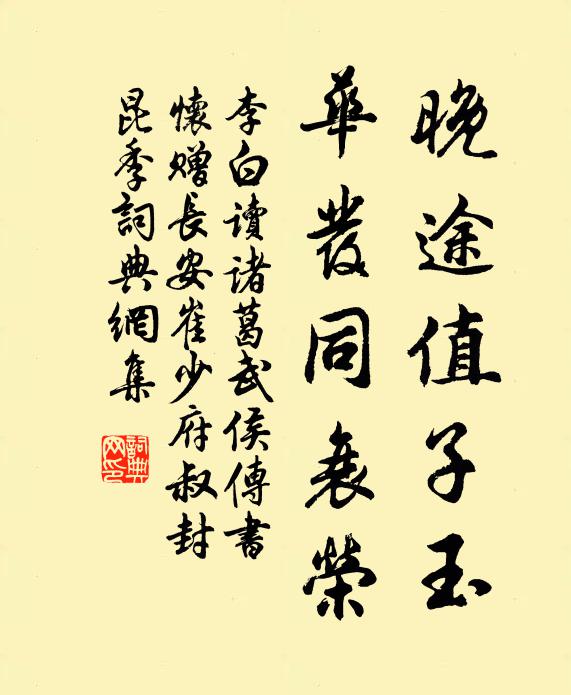 晚途值子玉
華發同衰榮
李白讀諸葛武侯傳書
懷贈長安崔少府叔封
昆季詞典網集
詞典网印